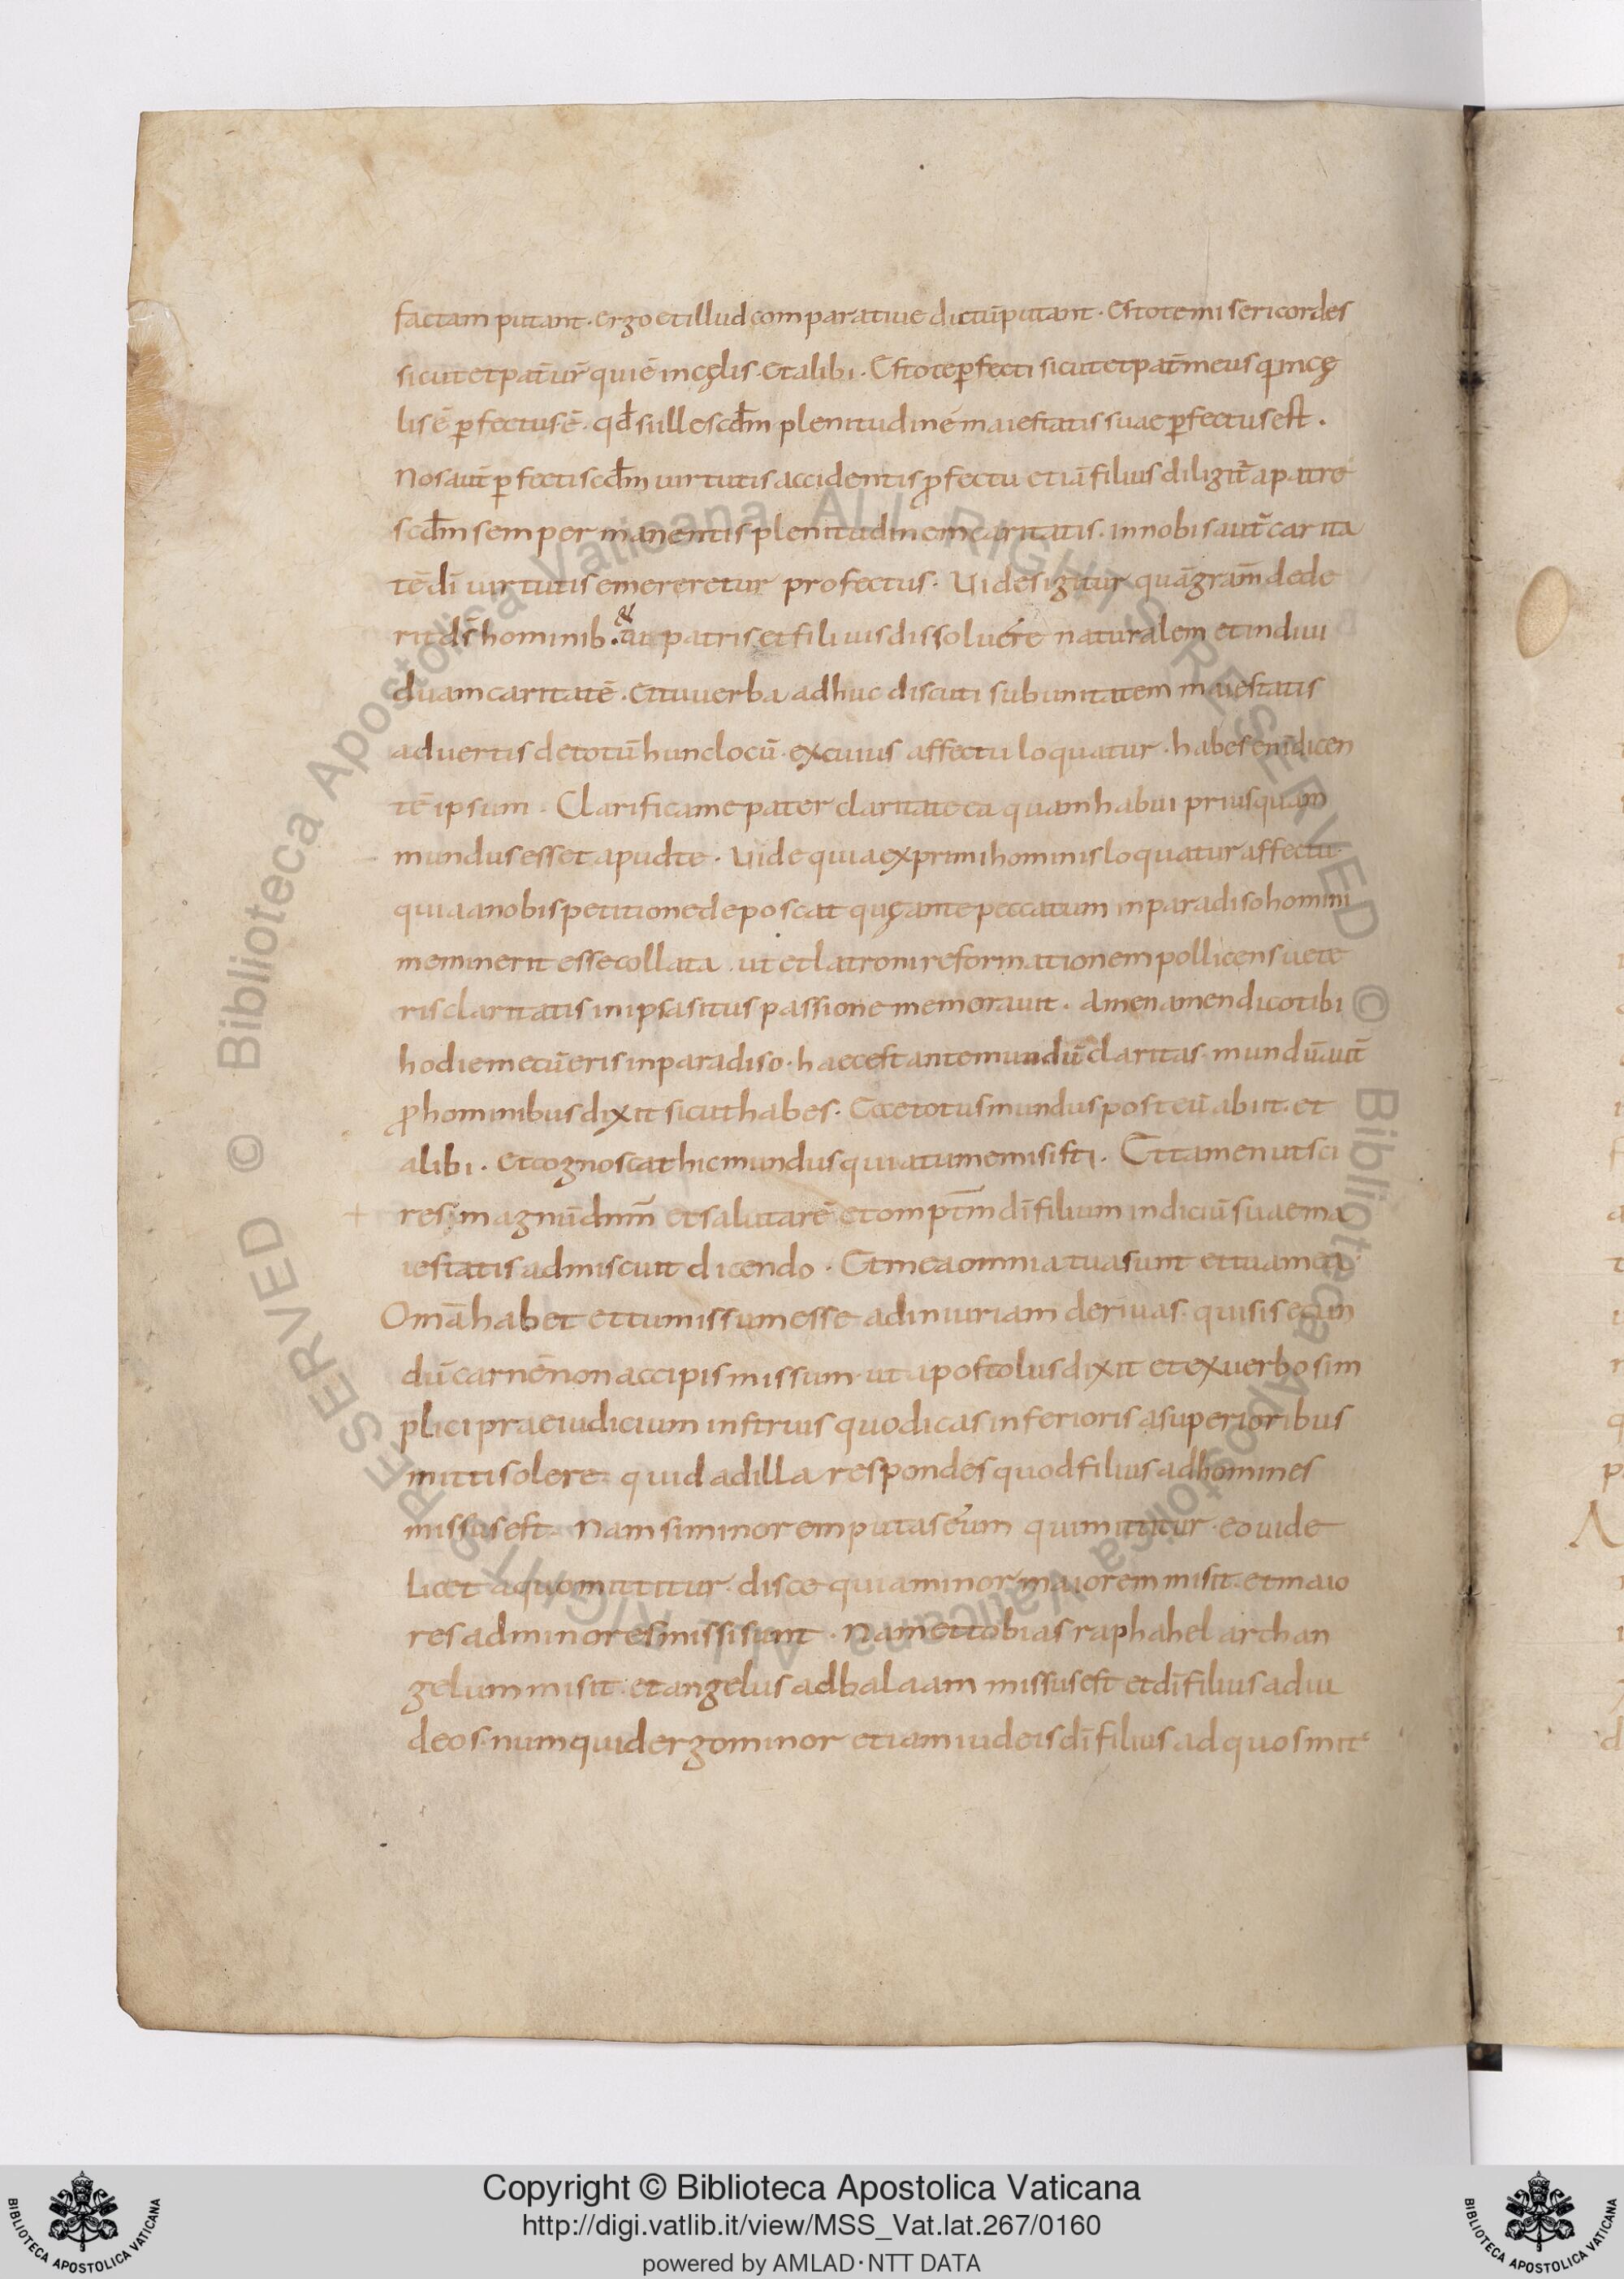 factam putant. ergo et illud comparatiue dictū putant. Estote misericordes
sicut et pat̄ ur̄ qui ē in cęlis. Et alibi. Estote ꝑfecti sicut et pat̄ meus q̇ in cę
lis ē ꝑfectus ē. qd̄ s̄ ille scd̄m plenitudinē maiestatis suae ꝑfectus est.
Nos aut̄ ꝑfecti scd̄m uirtutis accidentis ꝓfectu etiā filius diligit̄ a patre
scd̄m semper manentis plenitudinem caritatis. in nobis aut̄ carita
tē dī uirtutis emereretur profectus. Uides igitur quā gram̄ dede
rit ds̄ hominib. & tu patris et filii uis dissoluere naturalem et indiui
duam caritatē. Et tu uerba adhuc discuti sub unitatem maiestatis
aduertis de totū hunc locū. ex cuius affectu loquatur. habes enī dicen
tē ipsum. Clarifica me pater claritate ea quam habui priusquam
mundus esset apud te. Uide quia ex primi hominis loquatur affectu
quia a nobis petitione deposcat quę ante peccatum in paradiso homini
meminerit esse collata. ut et latroni reformationem pollicens uete
ris claritatis in ipsa situs passione memorauit. Amen amen dico tibi
hodie mecū eris in paradiso. haec est ante mundū claritas. mundū aut̄
ꝓ hominibus dixit sicut habes. Ecce totus mundus post eū abiit. et
alibi. et cognoscat hic mundus quia tu me misisti. Et tamen ut sci
res magnū dnm̄ et salutarē et omptm̄ dī filium indiciū suae ma
iestatis admiscuit dicendo. Et mea omnia tua sunt et tua mea.
Omā habet et tu missum esse ad iniuriam deriuas. qui si secun
dū carnē non accipis missum ut apostolus dixit et ex uerbo sim
plici praeiudicium instruis quo dicas inferioris a superioribus
mitti solere. quid ad illa respondes quod filius ad homines
missus est. Nam si minorem putas eum qui mittitur. eo uide
licet a quo mittitur. disce quia minor maiorem misit. et maio
res ad minores missi sunt. Nam et tobias raphahel archan
gelum misit. et angelus ad balaam missus est et dī filius ad iu
deos. numquid ergo minor etiam iudeis dī filius ad quos mitt
Biblioteca Apostolica Vaticana ALL RIGHTS RESERVED ©
Biblioteca Apostolica Vaticana ALL RIGHTS RESERVED ©
Copyright © Biblioteca Apostolica Vaticana
http://digi.vatlib.it/view/MSS_Vat.lat.267/0160
powered by AMLAD·NTT DATA
BIBLIOTECA APOSTOLICA VATICANA
BIBLIOTECA APOSTOLICA VATICANA